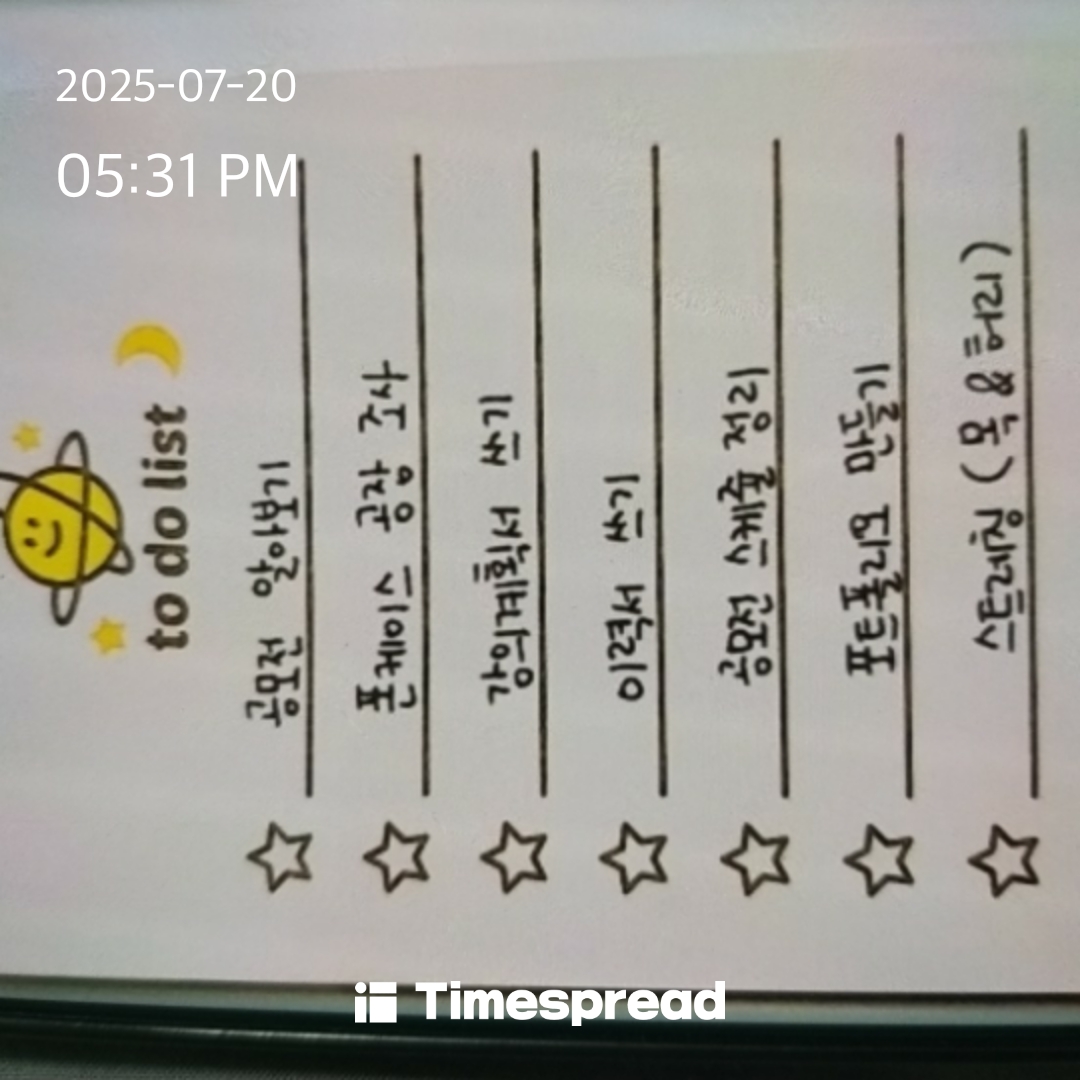 2025-07-20
05:31 PM
to do list
공모전 알아보기
폰케이스 공장 조사
강의계획서 쓰기
이력서 쓰기
공모전 스케줄 정리
포트폴리오 만들기
스트레칭 (목 & 허리)
Timespread